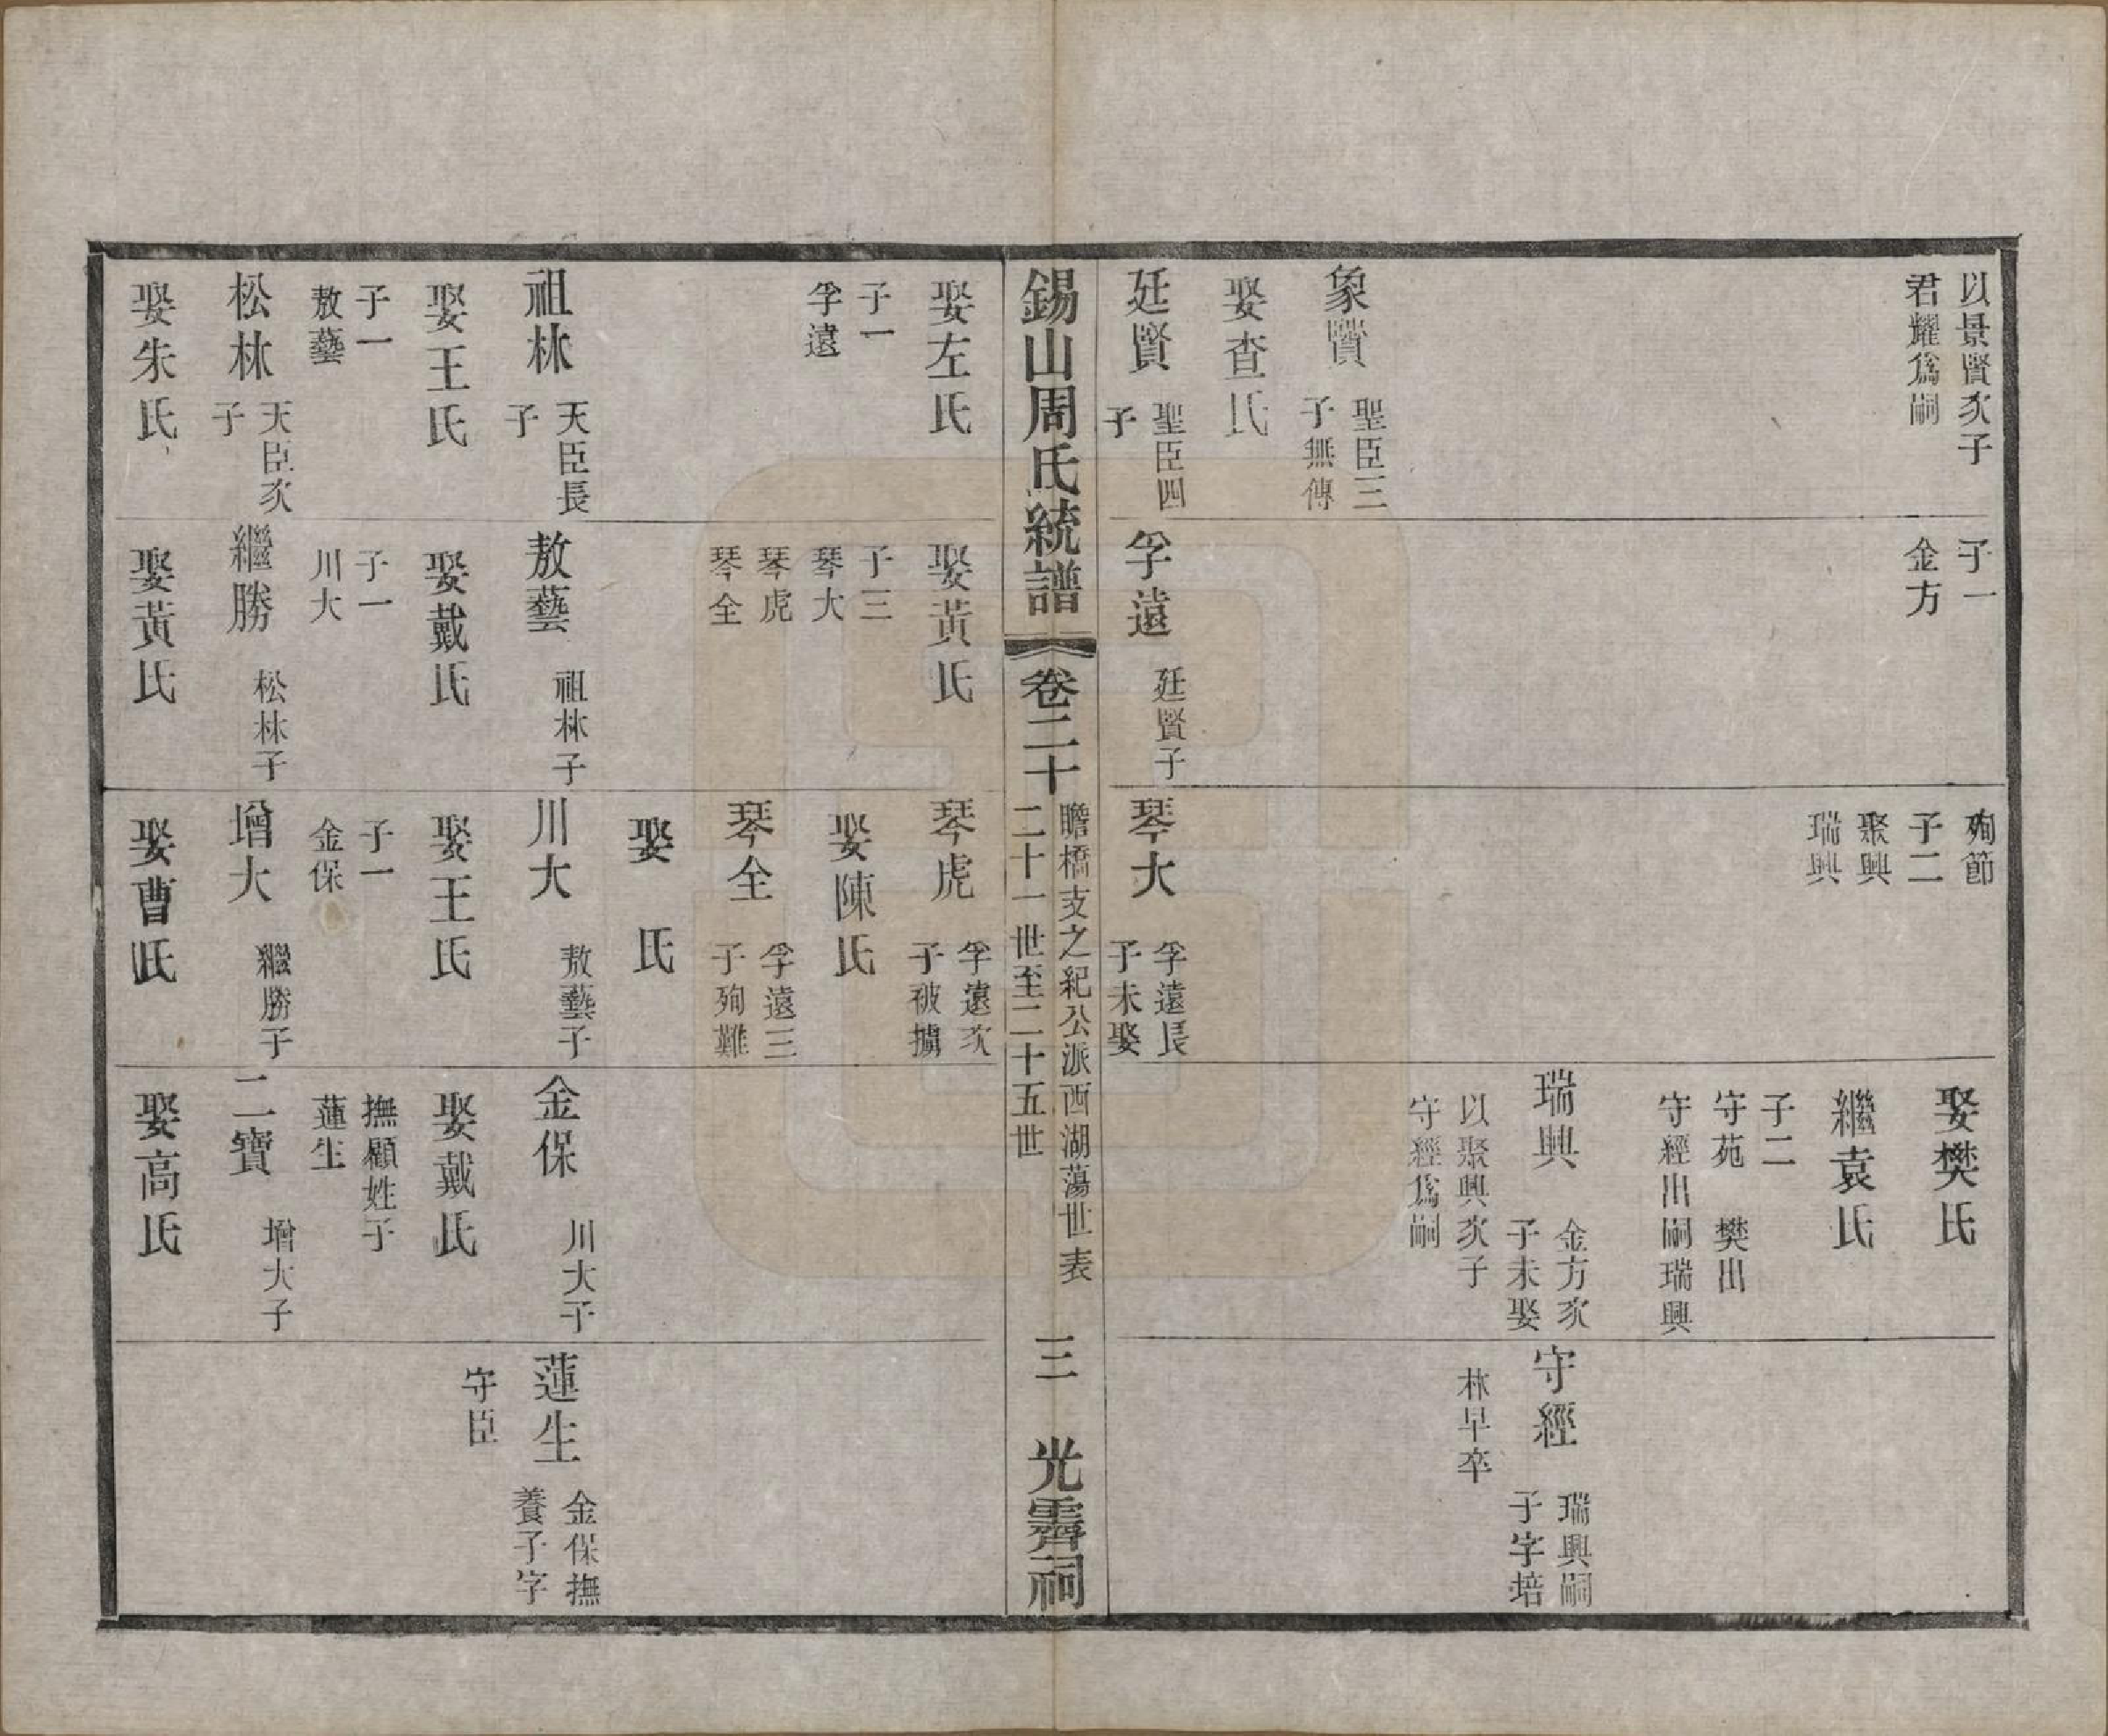 以景賢次子
君耀爲嗣
象賢
聖臣三
子無傳
娶查氏
廷賢
聖臣四
子
子一
金方
孚遠
廷賢子
殉節
子二
聚興
瑞興
琴大
孚遠長
子未娶
娶樊氏
繼袁氏
子二
守苑 樊出
守經出嗣瑞興
瑞興
金方次
子未娶
以聚興次子
守經爲嗣
守經
瑞興嗣
子字培
林早卒
錫山周氏統譜
卷二十
瞻橋支之紀公派西湖蕩世表
二十一世至二十五世
三
光霽祠
娶左氏
子一
孚遠
祖林
天臣長
子
娶王氏
子一
敖藝
松林
天臣次
子
娶朱氏
娶黃氏
子三
琴大
琴虎
琴全
敖藝
祖林子
娶戴氏
子一
川大
繼勝
松林子
娶黃氏
琴虎
孚遠次
子被擄
娶陳氏
琴全
孚遠三
子殉難
娶 氏
川大
敖藝子
娶王氏
子一
金保
增大
繼勝子
娶曹氏
金保
川大子
娶戴氏
撫顧姓子
蓮生
二寶
增大子
娶高氏
蓮生
金保撫
養子字
守臣